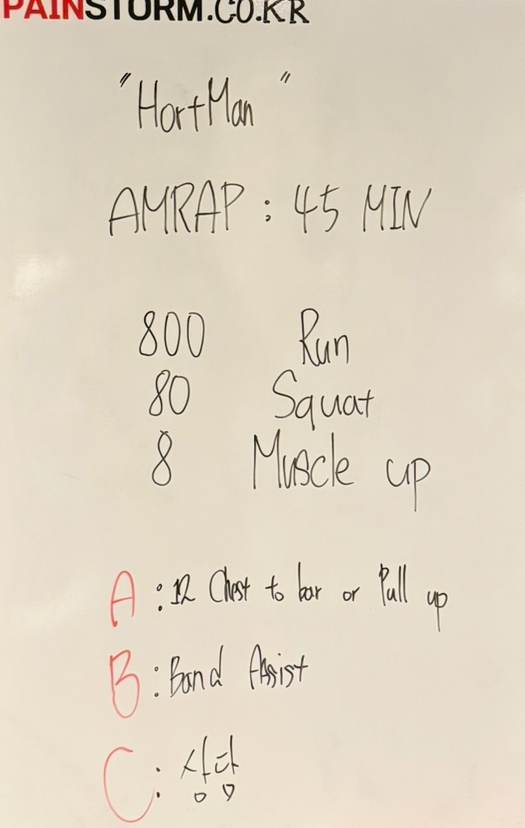 PAINSTORM.CO.KR
"HortMan"
AMRAP : 45 MIN
800 Run
80 Squat
8 Muscle up
A : 12 Chest to bar or Pull up
B : Band Assist
C : 상담